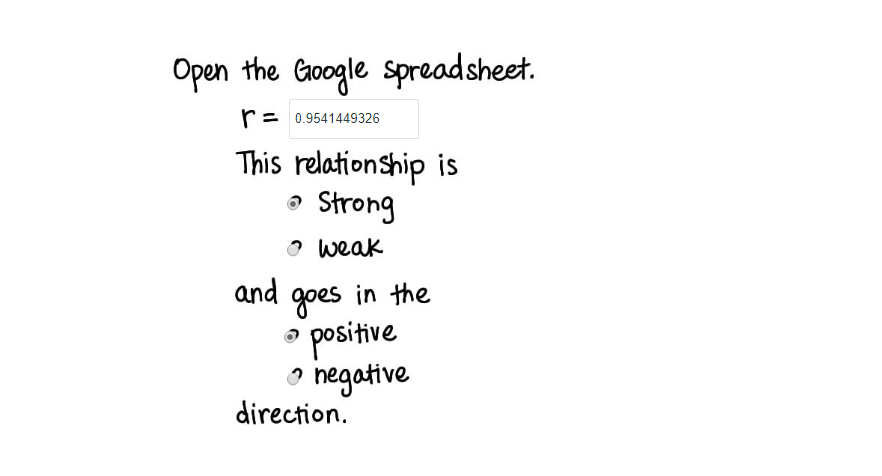 Open the Google spreadsheet.
r = 0.9541449326
This relationship is
Strong
weak
and goes in the
positive
negative
direction.